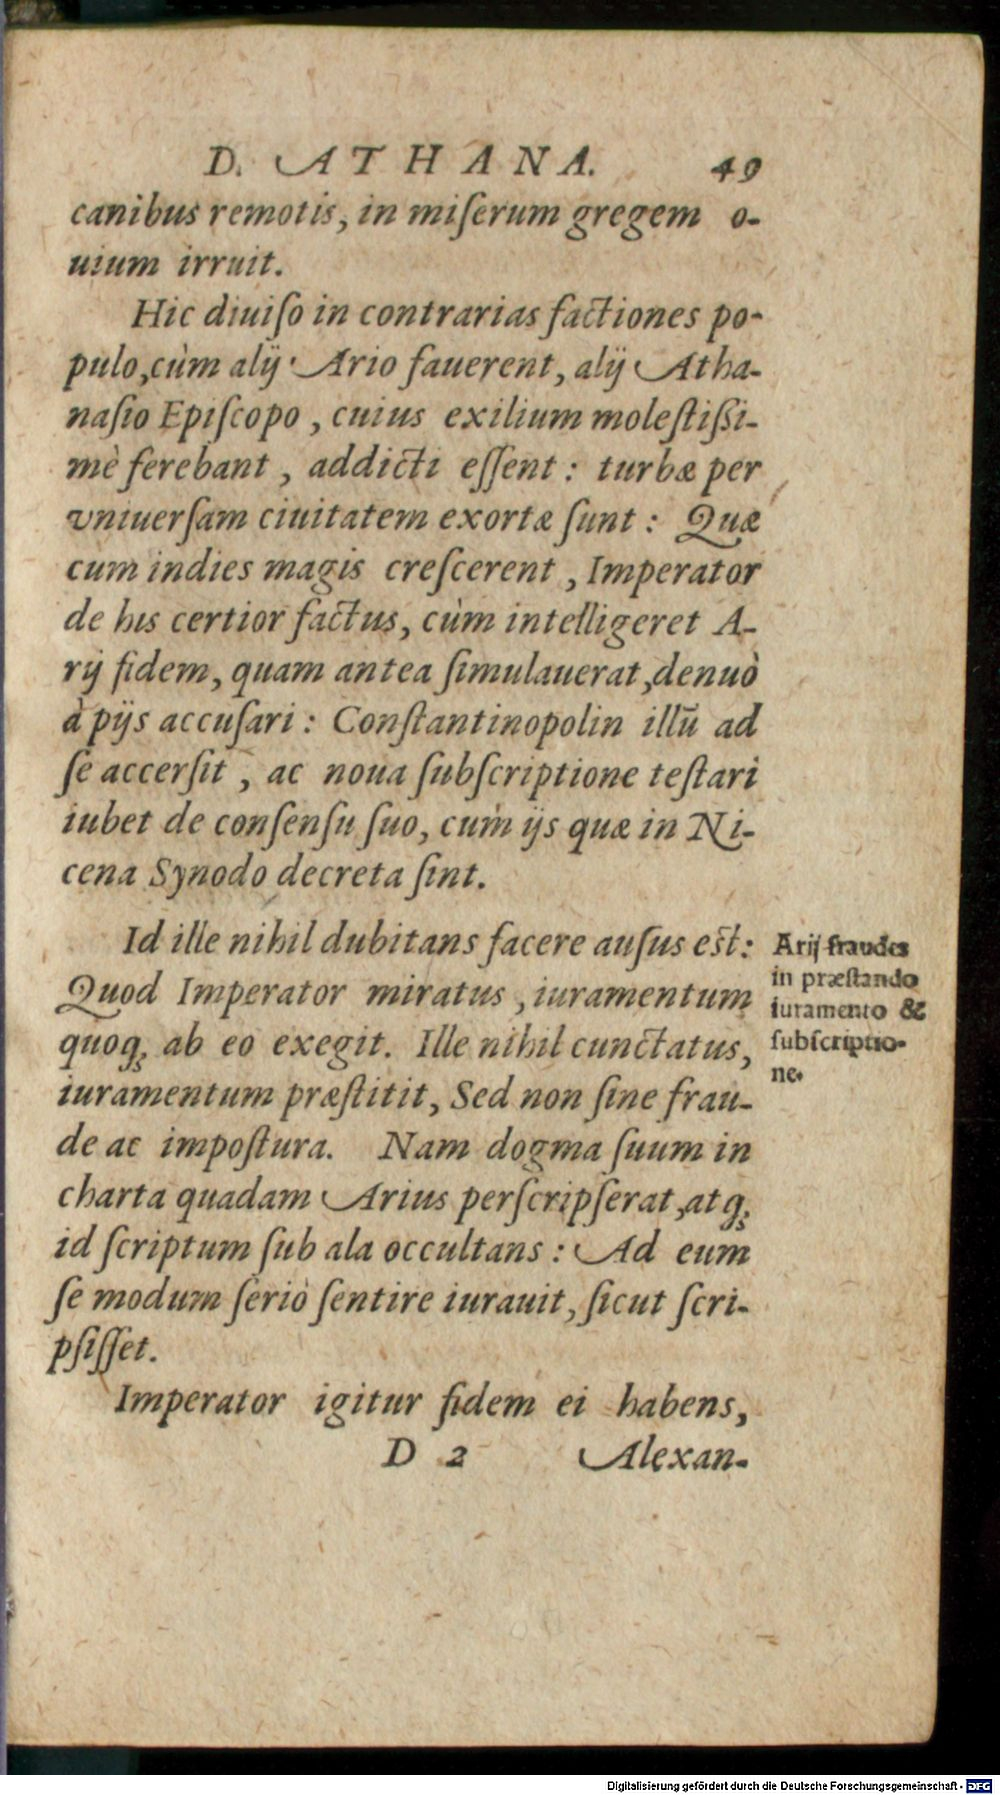 D. ATHANA. 49
canibus remotis, in miſerum gregem o-
uium irruit.
Hic diuiſo in contrarias factiones po-
pulo, cùm alij Ario fauerent, alij Atha-
naſio Epiſcopo, cuius exilium moleſtißi-
mè ferebant, addicti eſſent: turbæ per
vniuerſam ciuitatem exortæ ſunt: Quæ
cum indies magis creſcerent, Imperator
de his certior factus, cùm intelligeret A-
rij fidem, quam antea ſimulauerat, denuò
à pijs accuſari: Conſtantinopolin illū ad
ſe accerſit, ac noua ſubſcriptione teſtari
iubet de conſenſu ſuo, cum ijs quæ in Ni-
cena Synodo decreta ſint.
Id ille nihil dubitans facere auſus eſt:
Quod Imperator miratus, iuramentum
quoq; ab eo exegit. Ille nihil cunctatus,
iuramentum præſtitit, Sed non ſine frau-
de ac impoſtura. Nam dogma ſuum in
charta quadam Arius perſcripſerat, atq;
id ſcriptum ſub ala occultans: Ad eum
ſe modum ſeriò ſentire iurauit, ſicut ſcri-
pſiſſet.
Imperator igitur fidem ei habens,
D 2 Alexan-
Arij fraudes
in præſtando
iuramento &
ſubſcriptio-
ne.
Digitalisierung gefördert durch die Deutsche Forschungsgemeinschaft - DFG